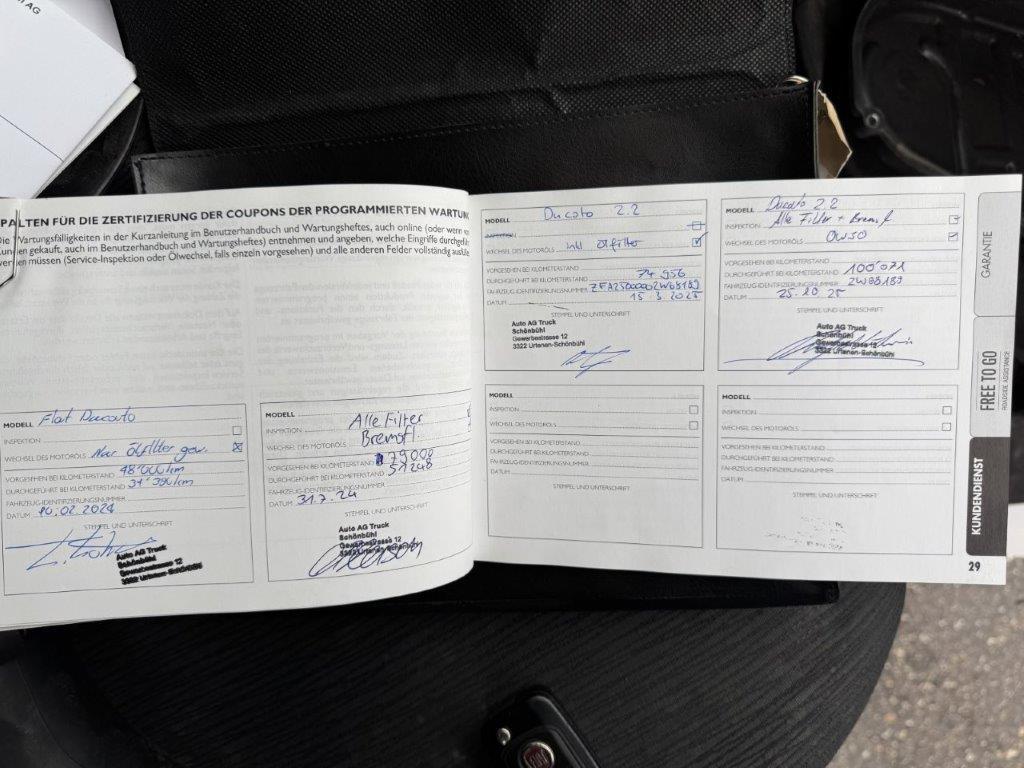 AG
PALTEN FÜR DIE ZERTIFIZIERUNG DER COUPONS DER PROGRAMMIERTEN WARTUN
Die Wartungsfälligkeiten in der Kurzanleitung im Benutzerhandbuch und Wartungsheftes, auch online (oder wenn
gekauft, auch im Benutzerhandbuch und Wartungsheftes) entnehmen und angeben, welche Eingriffe durchgef
werden müssen (Service-Inspektion oder Ölwechsel, falls einzeln vorgesehen) und alle anderen Felder vollständig
MODELL Fiat Ducato
INSPEKTION
WECHSEL DES MOTORÖLS Nur Ölfilter gew.
VORGESEHEN BEI KILOMETERSTAND 48'000 km
DURCHGEFÜHRT BEI KILOMETERSTAND
FAHRZEUG-IDENTIFIZIERUNGSNUMMER
DATUM 10.02.2024
STEMPEL UND UNTERSCHRIFT
Auto AG Truck
Schönbühl
Gewerbestrasse 12
3322 Urtenen-Schönbühl
MODELL Alle Filter
INSPEKTION Bremsfl.
WECHSEL DES MOTORÖLS
VORGESEHEN BEI KILOMETERSTAND 79000
DURCHGEFÜHRT BEI KILOMETERSTAND 51248
FAHRZEUG-IDENTIFIZIERUNGSNUMMER
DATUM 31.7.24
STEMPEL UND UNTERSCHRIFT
Auto AG Truck
Schönbühl
Gewerbestrasse 12
3322 Urtenen-Schönbühl
MODELL Ducato 2.2
INSPEKTION
WECHSEL DES MOTORÖLS inkl Ölfilter
VORGESEHEN BEI KILOMETERSTAND
DURCHGEFÜHRT BEI KILOMETERSTAND 74 956
FAHRZEUG-IDENTIFIZIERUNGSNUMMER
DATUM
STEMPEL UND UNTERSCHRIFT
Auto AG Truck
Schönbühl
Gewerbestrasse 12
3322 Urtenen-Schönbühl
MODELL Ducato 2.2
INSPEKTION Alle Filter + Bremsfl
WECHSEL DES MOTORÖLS 0W30
VORGESEHEN BEI KILOMETERSTAND
DURCHGEFÜHRT BEI KILOMETERSTAND 100'071
FAHRZEUG-IDENTIFIZIERUNGSNUMMER 2W68189
DATUM 25.10.25
STEMPEL UND UNTERSCHRIFT
Auto AG Truck
Schönbühl
Gewerbestrasse 12
3322 Urtenen-Schönbühl
MODELL
INSPEKTION
WECHSEL DES MOTORÖLS
VORGESEHEN BEI KILOMETERSTAND
DURCHGEFÜHRT BEI KILOMETERSTAND
FAHRZEUG-IDENTIFIZIERUNGSNUMMER
DATUM
STEMPEL UND UNTERSCHRIFT
MODELL
INSPEKTION
WECHSEL DES MOTORÖLS
VORGESEHEN BEI KILOMETERSTAND
DURCHGEFÜHRT BEI KILOMETERSTAND
FAHRZEUG-IDENTIFIZIERUNGSNUMMER
DATUM
STEMPEL UND UNTERSCHRIFT
GARANTIE
FREE TO GO
ROADSIDE ASSISTANCE
KUNDENDIENST
29
FIAT